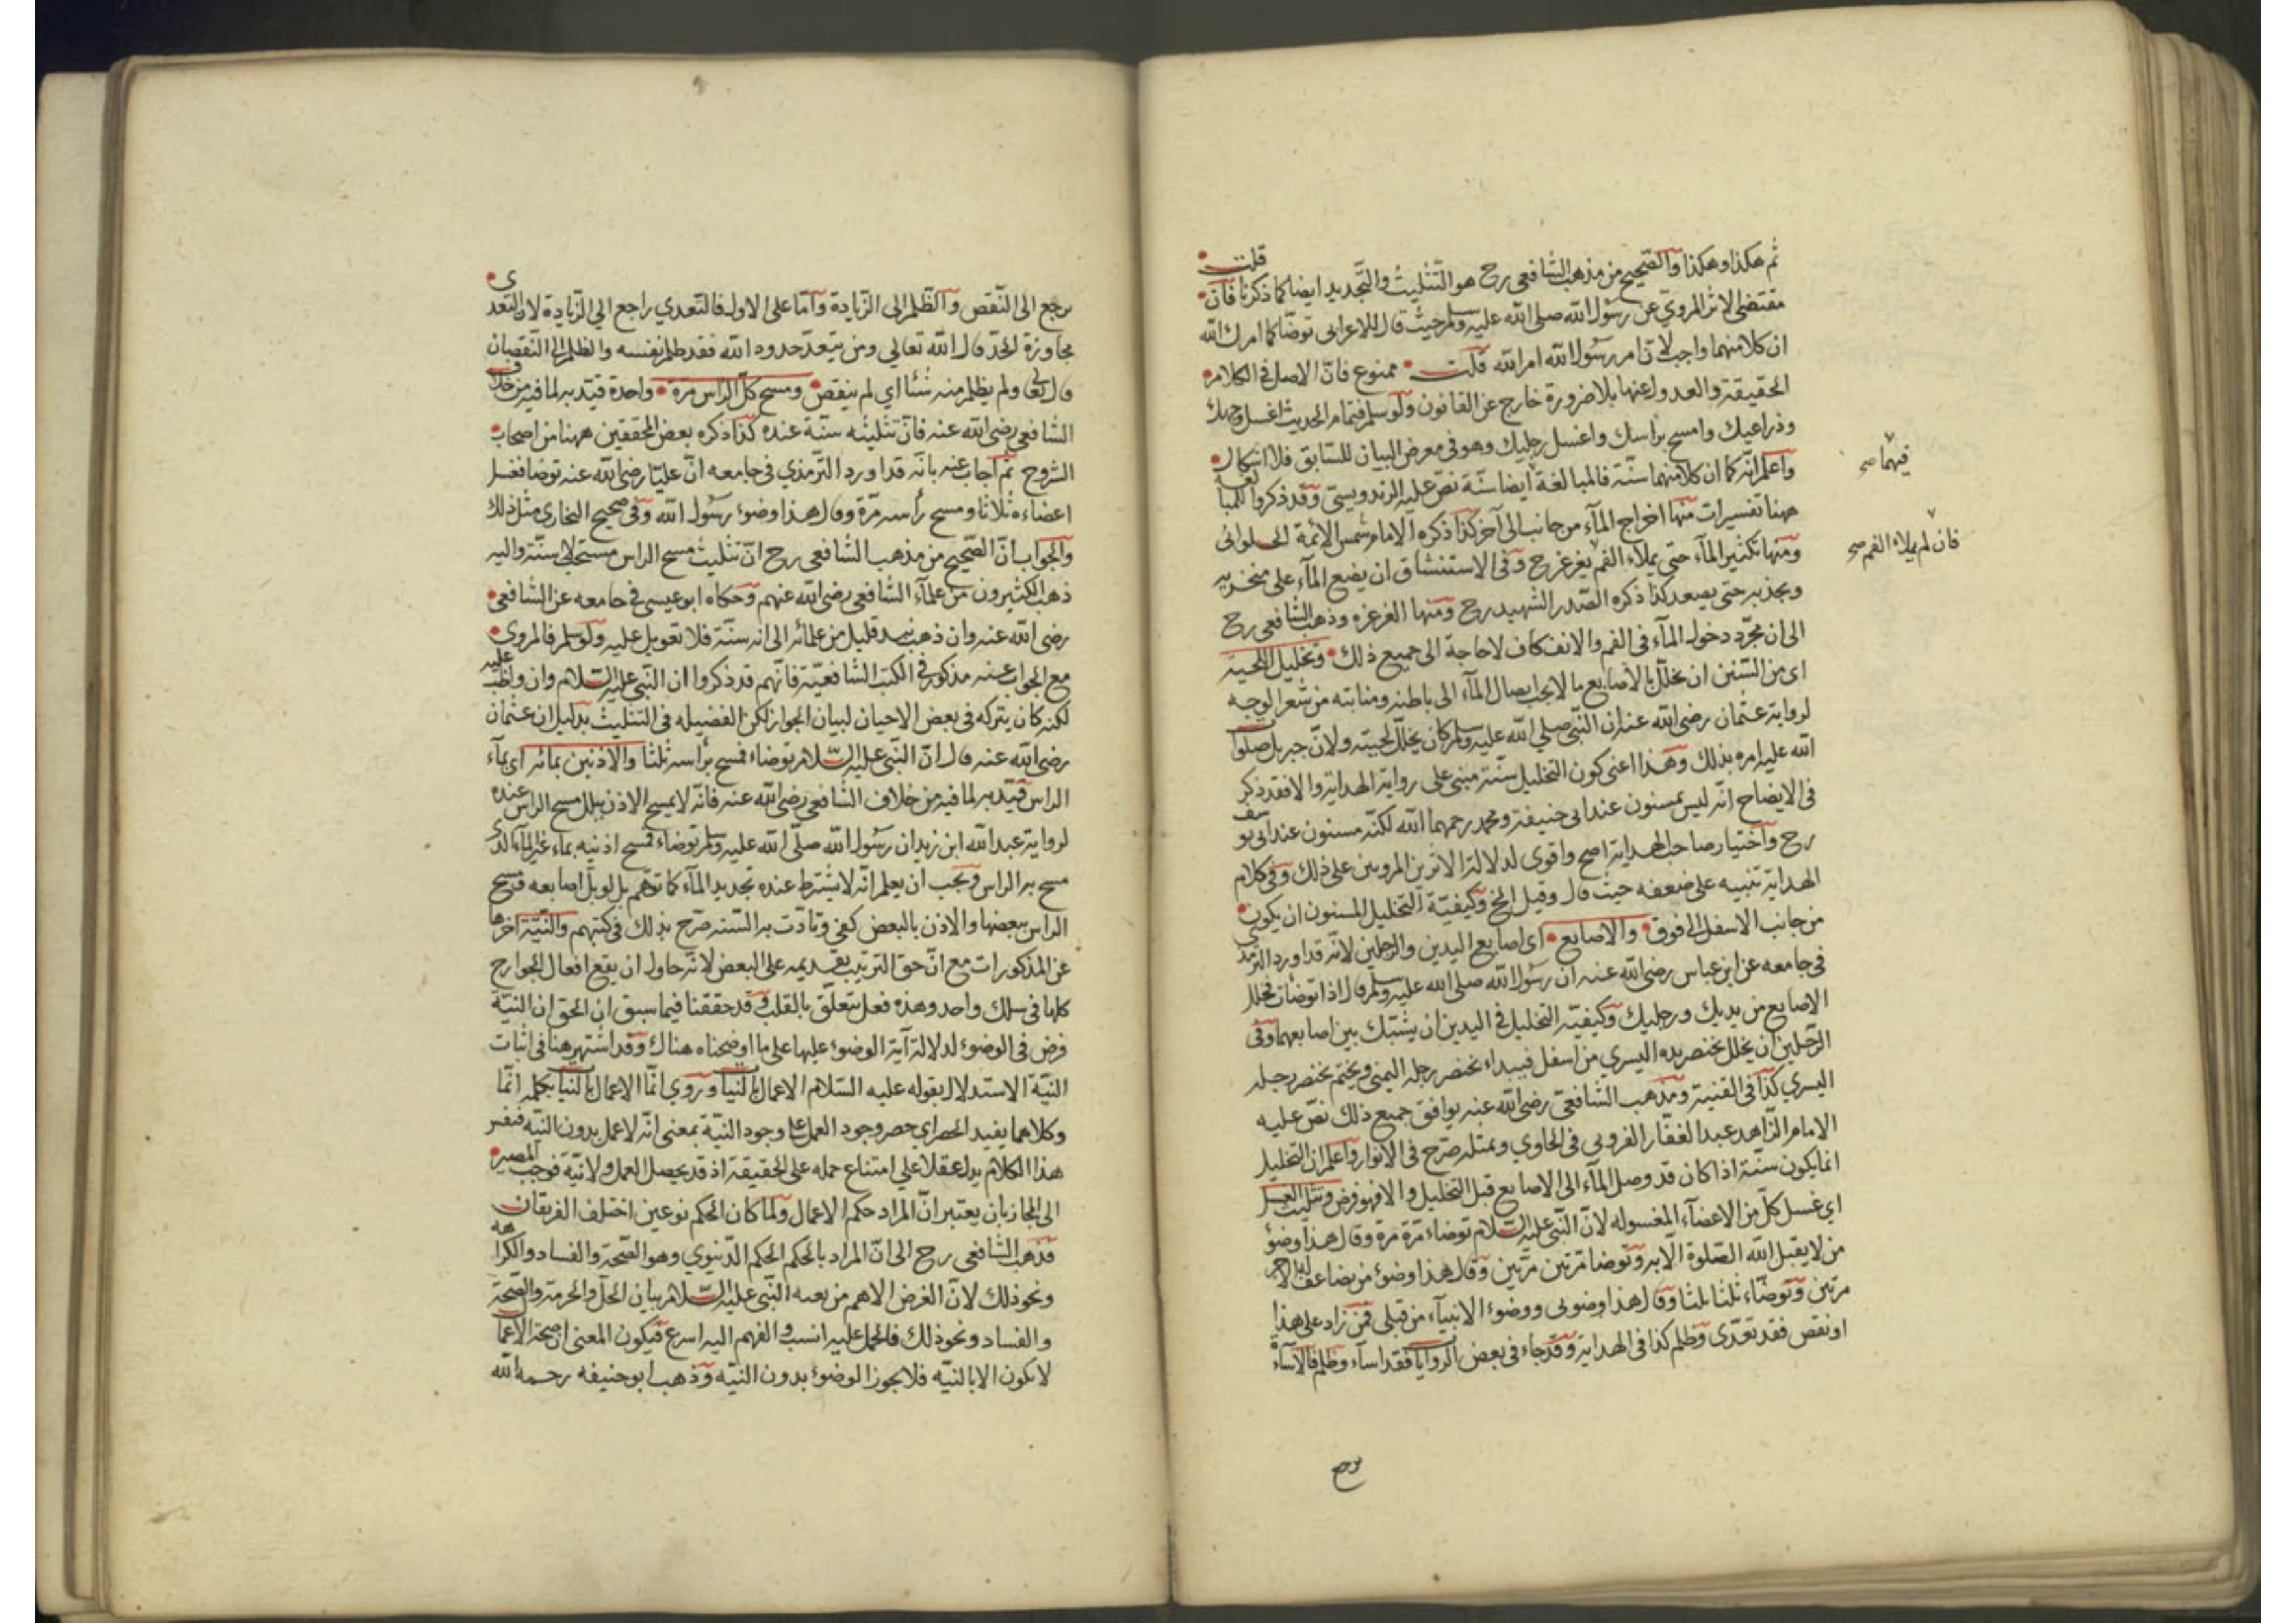 ثم هكذا وهكذا والصحيح من مذهب الشافعي رح هو التثليث والتجديد ايضا كما ذكرنا فان قلت
مقتضى الاثر المروي عن رسول الله صلى الله عليه وسلم حيث قال للاعرابي توضأ كما امرك الله
ان كلا منهما واجب لان امر رسول الله امر الله قلت ممنوع فان الاصل في الكلام
الحقيقة والعدول عنها بلا ضرورة خارج عن القانون ولو سلم فتمام الحديث اغسل وجهك
وذراعيك وامسح برأسك واغسل رجليك وهو في معرض البيان للسابق فلا اشكال
واعلم انه كما ان كلا منهما سنة فالمبالغة ايضا سنة نص عليه الزندويستي وقد ذكروا للمبالغة
ههنا تفسيرات منها اخراج المآء من جانب الى آخر كذا ذكره الامام شمس الائمة الحلواني
ومنها تكثير المآء حتى يملاء الفم يغرغر ح وفي الاستنشاق ان يضع المآء على منخريه
ويجذبه حتى يصعد كذا ذكره الصدر الشهيد رح ومنها الغرغره وذهب الشافعي رح
الى ان مجرد دخول المآء في الفم والانف كاف لا حاجة الى جميع ذلك وتخليل اللحية
اى من السنن ان يخلل بالاصابع ما لا يجب ايصال المآء الى باطنه ومنابته من شعر الوجه
لرواية عثمان رضي الله عنه ان النبي صلي الله عليه وسلم كان يخلل لحيته ولان جبريل صلوات
الله عليه امره بذلك وهذا اعنى كون التخليل سنة مبنى على رواية الهداية والا فقد ذكر
في الايضاح انه ليس بمسنون عند ابى حنيفة ومحمد رحمهما الله لكنه مسنون عند ابى يوسف
رح واختيار صاحب الهداية اصح واقوى لدلالة الاثرين المرويين على ذلك وفي كلام
الهداية تنبيه على ضعفه حيث قال وقيل الخ وكيفية التخليل المسنون ان يكون
من جانب الاسفل الى فوق والاصابع اى اصابع اليدين والرجلين لانه قد اورد الترمذي
في جامعه عن ابن عباس رضي الله عنه ان رسول الله صلى الله عليه وسلم قال اذا توضأت فخلل
الاصابع من يديك ورجليك وكيفية التخليل في اليدين ان يشتبك بين اصابعهما وفي
الرجلين ان يخلل بخنصر يده اليسري من اسفل فيبداء بخنصر رجله اليمنى ويختم بخنصر رجله
اليسري كذا في القنية ومذهب الشافعي رضي الله عنه يوافق جميع ذلك نص عليه
الامام الزاهد عبد الغفار القزويني في الحاوي وبمثله صرح في الانوار واعلم ان التخليل
انما يكون سنة اذا كان قد وصل المآء الى الاصابع قبل التخليل والا فهو فرض وتثليث الغسل
اي غسل كل من الاعضآء المغسوله لان النبي عليه السلام توضاء مرة مرة وقال هذا وضوؤ
من لا يقبل الله الصلوة الا به وتوضا مرتين مرتين وقال هذا وضوؤ من يضاعف له الاجر
مرتين وتوضاء ثلثا ثلثا وقال هذا وضوئي ووضوء الانبيآء من قبلي فمن زاد على هذا
او نقص فقد تعدى وظلم كذا في الهداية وقد جاء في بعض الروايات فقد اسآء وظلم فالاساءة
يرجع
فيهما صح
فان لم يملاء الفم صح
يرجع الى النقص والظلم الى الزيادة واما على الاول فالتعدي راجع الي الزيادة لان التعدى
مجاوزة الحد قال الله تعالي ومن يتعد حدود الله فقد ظلم نفسه والظلم الى النقصان
قال تعالى ولم يظلم منه شئا اي لم ينقص ومسح كل الراس مرة واحدة قيد به لما فيه من خلاف
الشافعي رضي الله عنه فان تثليثه سنة عنده كذا ذكره بعض المحققين ههنا من اصحاب
الشروح ثم اجاب عنه بانه قد اورد الترمذي في جامعه ان عليا رضي الله عنه توضا فغسل
اعضاءه ثلاثا ومسح رأسه مرة وقال هذا وضوء رسول الله وفي صحيح البخاري مثل ذلك
والجواب ان الصحيح من مذهب الشافعي رح ان تثليث مسح الراس مستحب لا سنة واليه
ذهب الكثيرون من علمآء الشافعي رضي الله عنهم وحكاه ابو عيسى في جامعه عن الشافعي
رضي الله عنه وان ذهب قليل من علمائه الى انه سنة فلا تعويل عليه ولو سلم فالمروى
مع الجواب عنه مذكور في الكتب الشافعية فانهم قد ذكروا ان النبي عليه السلام وان واظب عليه
لكنه كان يتركه في بعض الاحيان لبيان الجواز لكن الفضيله في التثليث بدليل ان عثمان
رضي الله عنه قال ان النبي عليه السلام توضاء فمسح برأسه ثلثا والاذنين بمائه اى بمآء
الراس قيد به لما فيه من خلاف الشافعي رضي الله عنه فانه لا يمسح الاذن ببلل مسح الراس عنده
لرواية عبد الله ابن زيد ان رسول الله صلى الله عليه وسلم توضاء فمسح اذنيه بماء غير المآء الذى
مسح به الراس ويجب ان يعلم انه لا يشترط عنده تجديد المآء كما توهم بل لو بل اصابعه فمسح
الراس ببعضها والاذن بالبعض كفي وتأدت به السنة صرح بذلك في كتبهم والنية اخرها
عن المذكورات مع ان حق الترتيب تقديمه على البعض لانه حاول ان يقع افعال الجوارح
كلها في سلك واحد وهذه فعل يتعلق بالقلب وقد حققنا فيما سبق ان الحق ان النية
فرض في الوضوء لدلالة آية الوضوء عليها على ما اوضحناه هناك وقد اشتهر هنا في اثبات
النية الاستدلال بقوله عليه السلام الاعمال بالنيات وروي انما الاعمال بالنيات بكلمه انما
وكلاهما يفيد الحصر اي حصر وجود العمل على وجود النية بمعني انه لا عمل بدون النية فنفس
هذا الكلام يدل عقلا على امتناع حمله على الحقيقة اذ قد يحصل العمل ولا نية فوجب المصير
الى المجاز بان يعتبر ان المراد حكم الاعمال ولما كان الحكم نوعين اختلف الفريقان
فذهب الشافعي رح الى ان المراد بالحكم الحكم الدنيوي وهو الصحة والفساد والكراهه
ونحو ذلك لان الغرض الاهم من بعثه النبي عليه السلام بيان الحل والحرمة والصحة
والفساد ونحو ذلك فالحمل عليه انسب والفهم اليه اسرع فيكون المعنى ان صحة الاعمال
لا تكون الا بالنيه فلا يجوز الوضوء بدون النيه وذهب ابو حنيفه رحمه الله